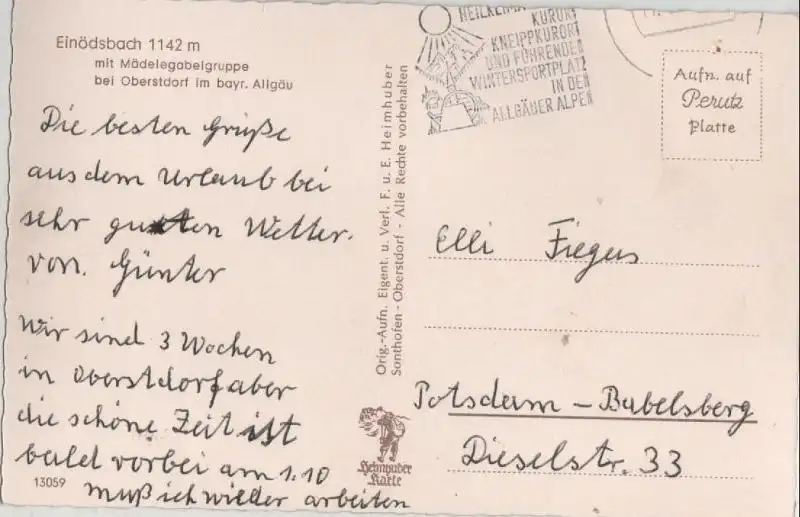 Einödsbach 1142 m
mit Mädelegabelgruppe
bei Oberstdorf im bayr. Allgäu
Die besten Grüße
aus dem Urlaub bei
sehr guten Wetter.
von. Günter
Wir sind 3 Wochen
in Oberstdorf aber
die schöne Zeit ist
bald vorbei am 1.10
muß ich wieder arbeiten
13059
Orig.-Aufn. Eigent. u. Verl. F. u. E. Heimhuber
Sonthofen - Oberstdorf - Alle Rechte vorbehalten
Heimhuber
Karte
KURORT
KNEIPPKURORT
UND FÜHRENDER
WINTERSPORTPLATZ
IN DEN
ALLGÄUER ALPEN
Aufn. auf
Perutz
Platte
Elli Fiegus
Potsdam - Babelsberg
Dieselstr. 33